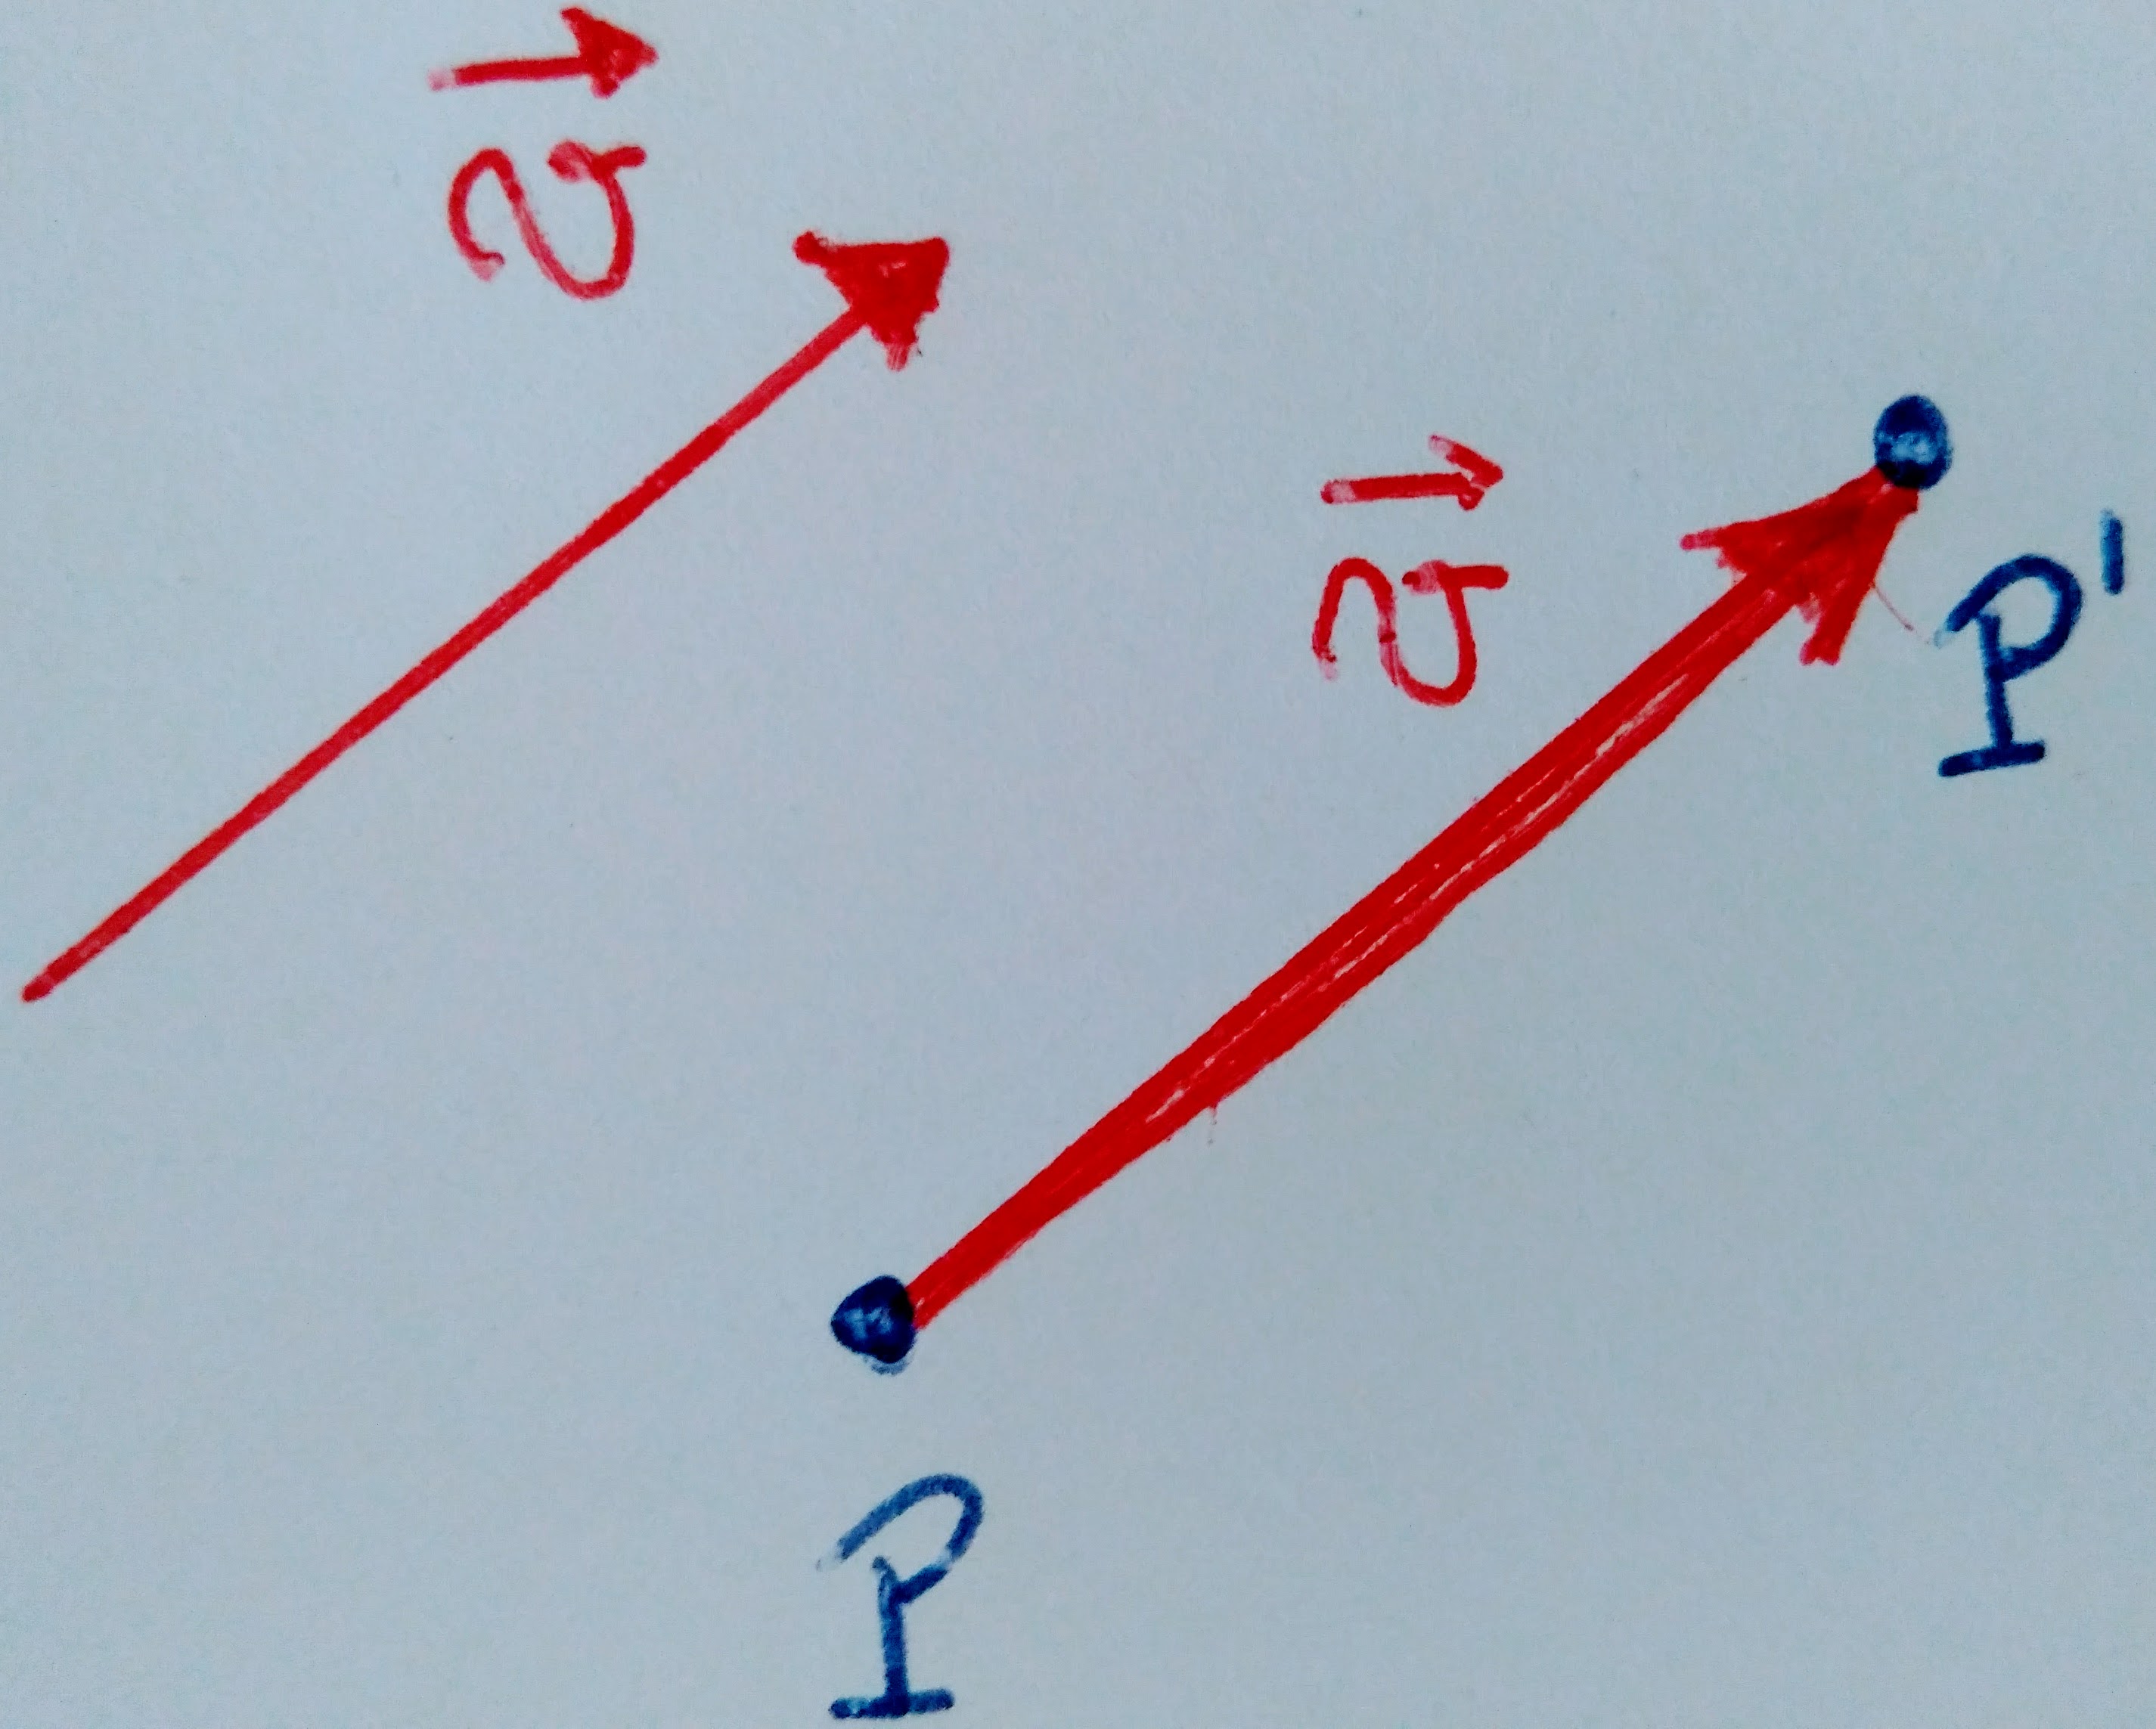 v⃗
v⃗
P'
P